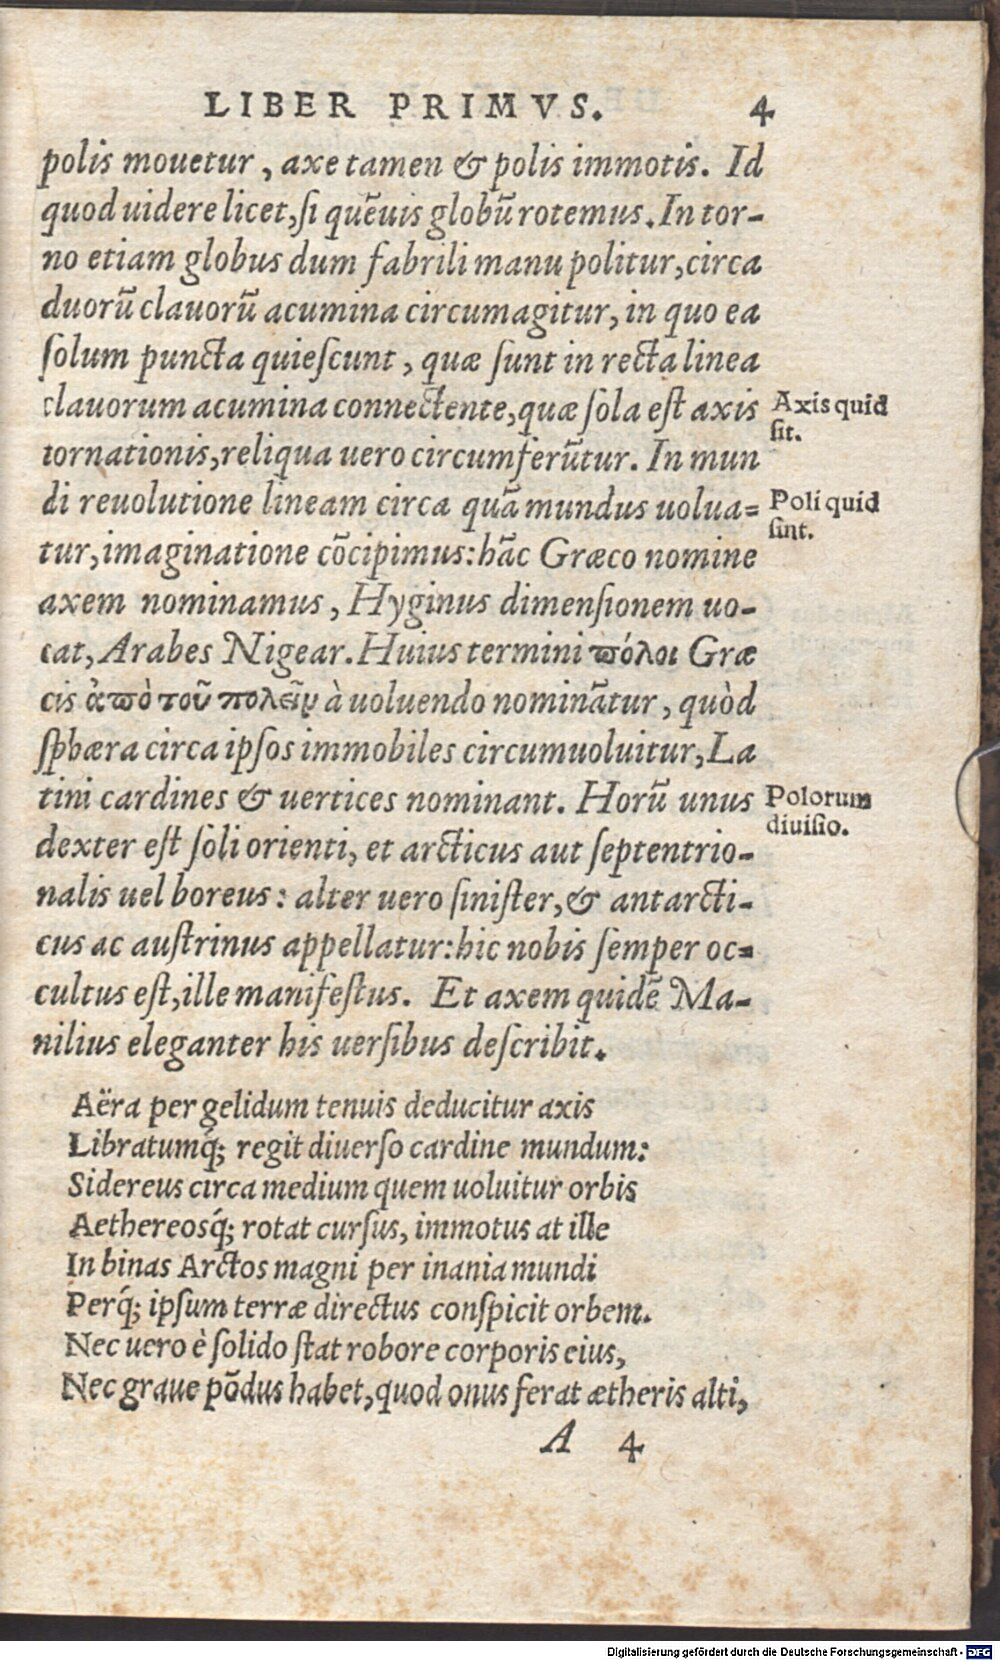 LIBER PRIMVS. 4
polis mouetur, axe tamen & polis immotis. Id
quod uidere licet, si quēuis globū rotemus. In tor-
no etiam globus dum fabrili manu politur, circa
duorū clauorū acumina circumagitur, in quo ea
solum puncta quiescunt, quæ sunt in recta linea
clauorum acumina connectente, quæ sola est axis
Axis quid
sit.
tornationis, reliqua uero circumferūtur. In mun
di reuolutione lineam circa quā mundus uolua=
Poli quid
sint.
tur, imaginatione cōcipimus: hāc Græco nomine
axem nominamus, Hyginus dimensionem uo-
cat, Arabes Nigear. Huius termini πόλοι Græ
cis ἀπὸ τοῦ πολεῖν à uoluendo nominātur, quòd
sphæra circa ipsos immobiles circumuoluitur, La
tini cardines & uertices nominant. Horū unus
Polorum
diuisio.
dexter est soli orienti, et arcticus aut septentrio-
nalis uel boreus: alter uero sinister, & antarcti-
cus ac austrinus appellatur: hic nobis semper oc=
cultus est, ille manifestus. Et axem quidē Ma-
nilius eleganter his uersibus describit.
Aëra per gelidum tenuis deducitur axis
Libratumq́; regit diuerso cardine mundum:
Sidereus circa medium quem uoluitur orbis
Aethereosq́; rotat cursus, immotus at ille
In binas Arctos magni per inania mundi
Perq́; ipsum terræ directus conspicit orbem.
Nec uero è solido stat robore corporis eius,
Nec graue pōdus habet, quod onus ferat ætheris alti,
A 4
Digitalisierung gefördert durch die Deutsche Forschungsgemeinschaft - DFG